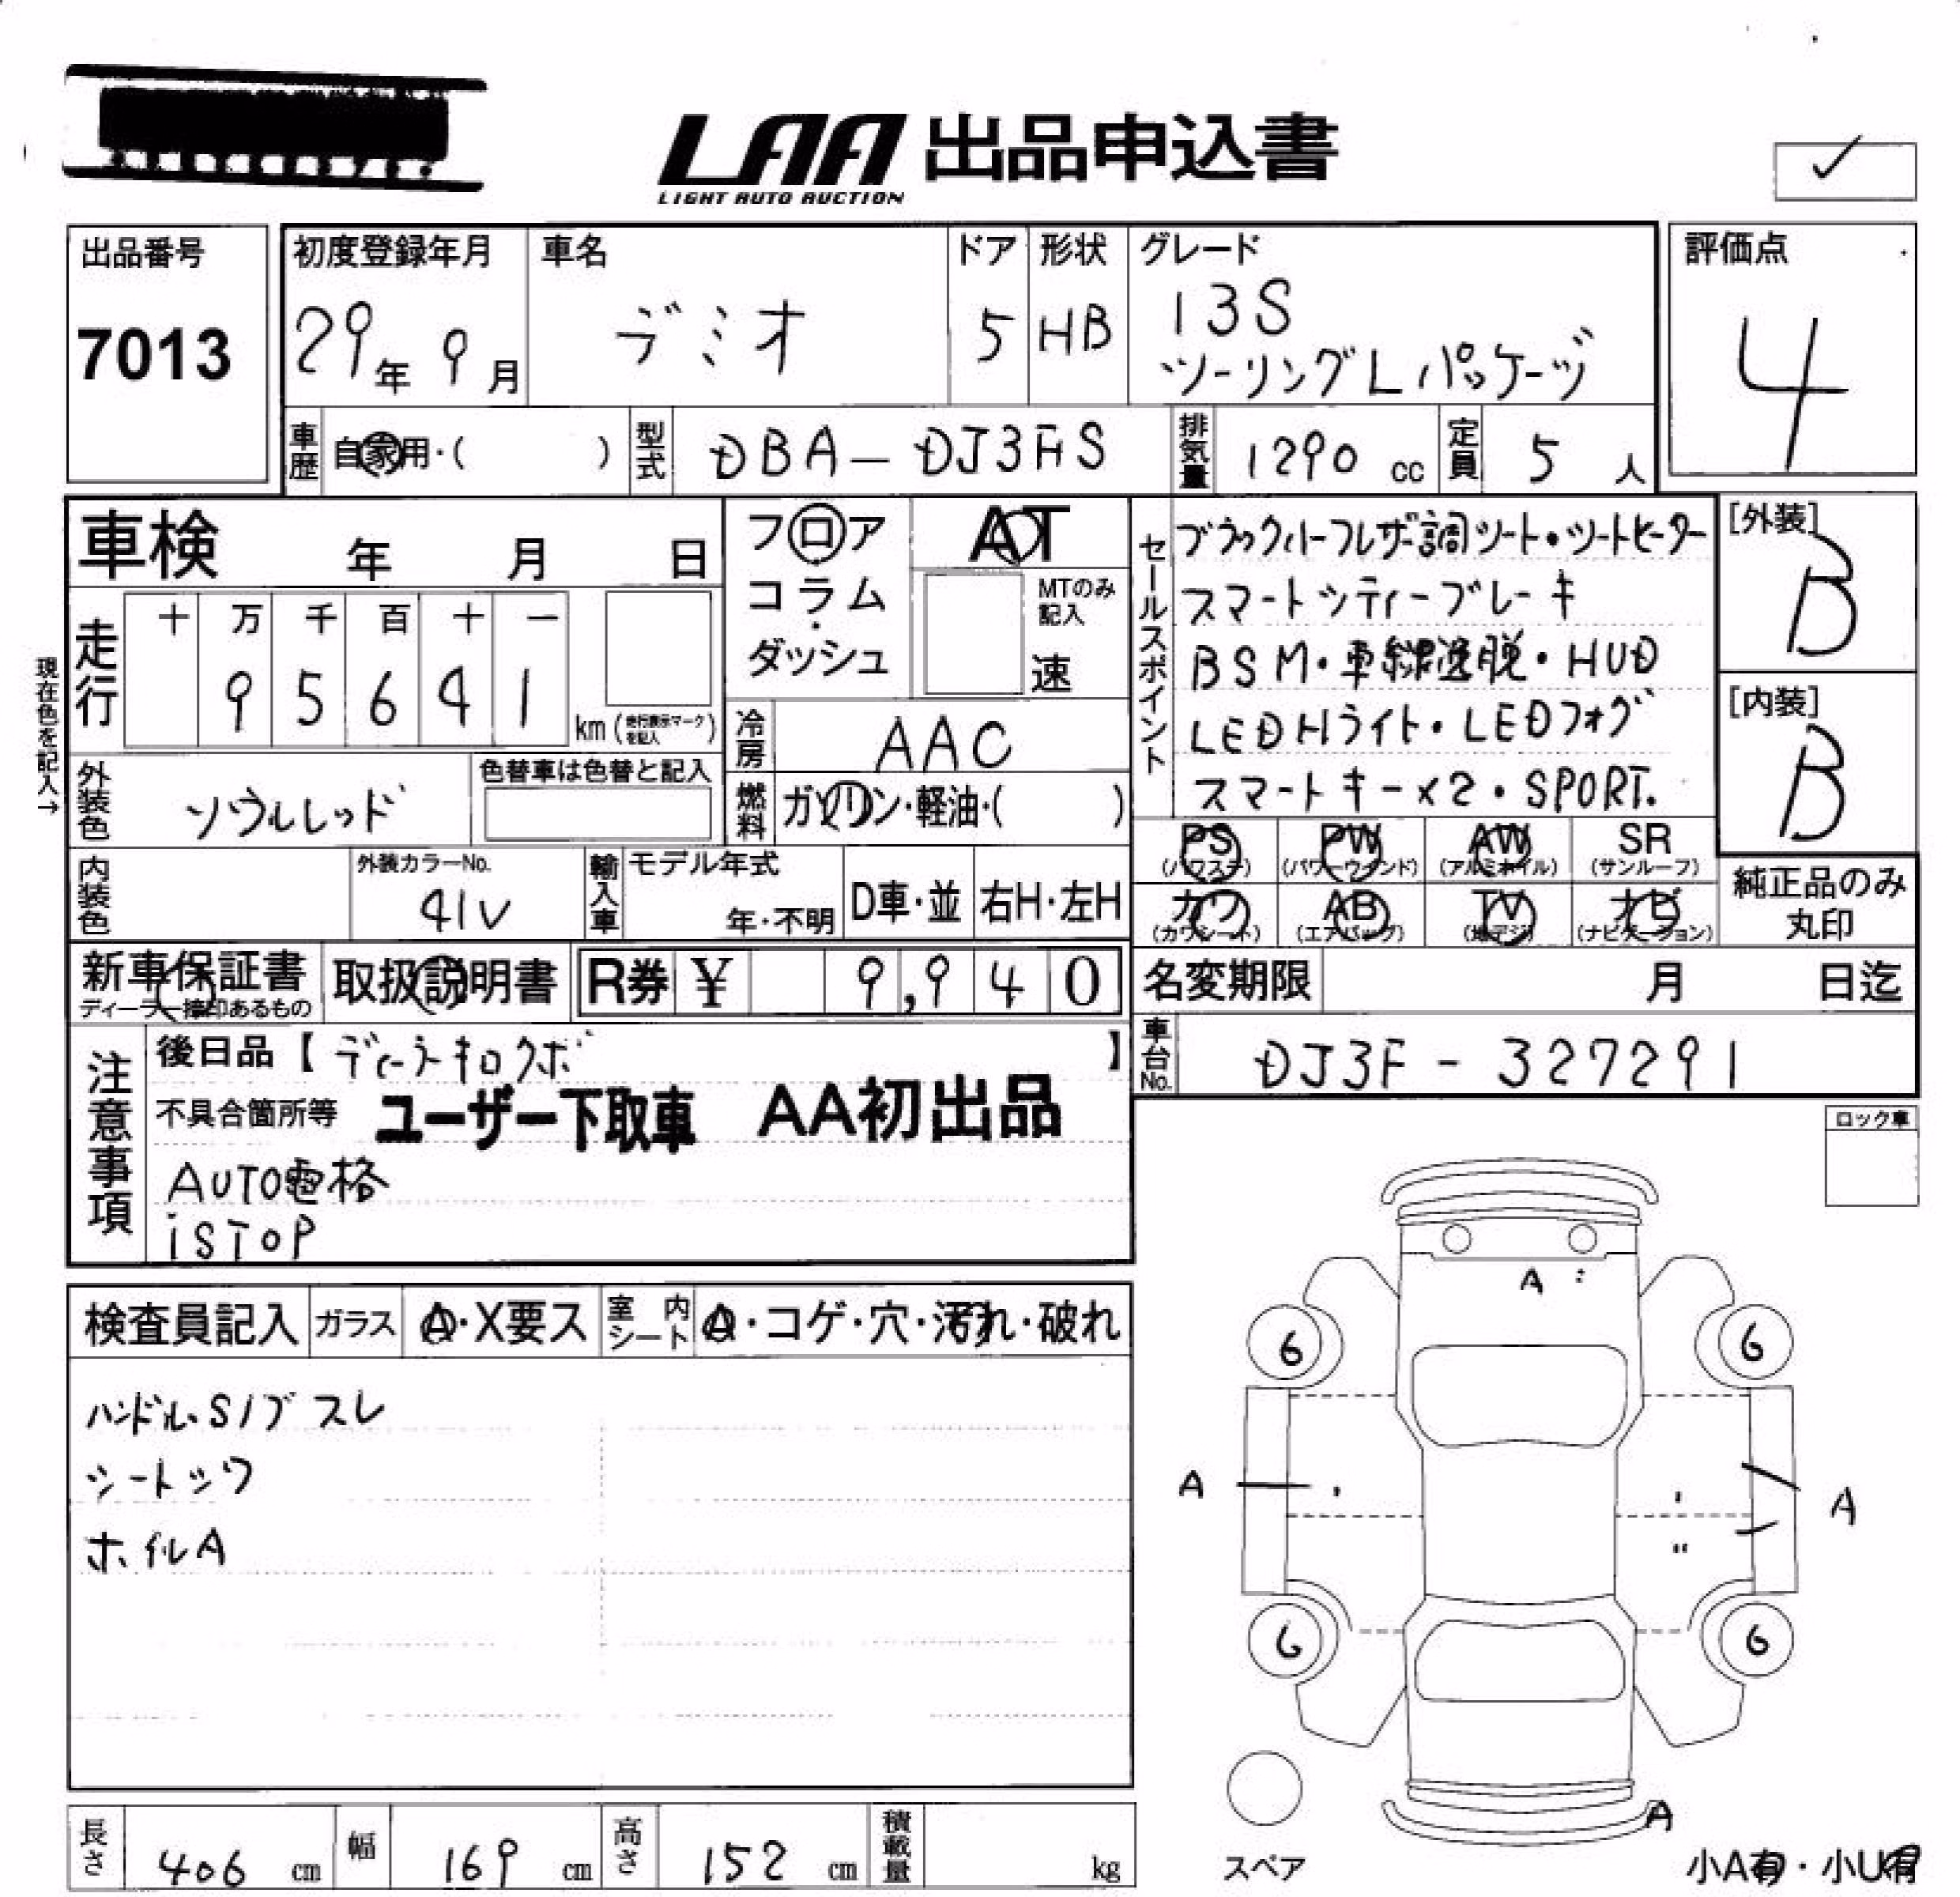 LAA 出品申込書
LIGHT AUTO AUCTION
出品番号
7013
初度登録年月
29年 9月
車名
デミオ
ドア
5
形状
HB
グレード
13S
ツーリングLパッケージ
評価点
4
車歴
自家用・( )
型式
DBA-DJ3FS
排気量
1290 cc
定員
5 人
車検 年 月 日
フロア
コラム
・
ダッシュ
AT
MTのみ
記入
速
セールスポイント
ブラックハーフレザー調シート・シートヒーター
スマートシティーブレーキ
BSM・車線逸脱・HUD
LEDHライト・LEDフォグ
スマートキー×2・SPORT.
[外装]
B
[内装]
B
現在色を記入→
走行
十 万 千 百 十 一
9 5 6 4 1
km(走行表示マークを記入)
冷房
AAC
外装色
ソウルレッド
色替車は色替と記入
燃料
ガソリン・軽油・( )
内装色
外装カラーNo.
41V
輸入車
モデル年式
年・不明
D車・並
右H・左H
PS
(パワステ)
PW
(パワーウインド)
AW
(アルミホイル)
SR
(サンルーフ)
カワ
(カワシート)
AB
(エアバッグ)
TV
(地デジ)
ナビ
(ナビゲーション)
純正品のみ
丸印
新車保証書
ディーラー捺印あるもの
取扱説明書
R券 ¥ 9,940
名変期限 月 日迄
車台No.
DJ3F-327291
注意事項
後日品【 】
不具合箇所等
ユーザー下取車 AA初出品
AUTO電格
iSTOP
ロック車
検査員記入
ガラス
A・X要ス
室内シート
A・コゲ・穴・汚れ・破れ
ハンドル.Sノブスレ
シートシワ
ホイルA
A
6
6
A
A
6
6
A
スペア
小A有・小U有
長さ
406 cm
幅
169 cm
高さ
152 cm
積載量
kg